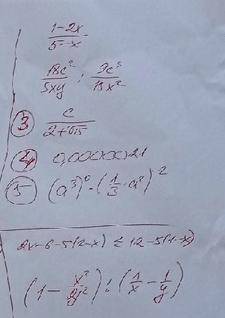 (1-2x)/(5-x)
(18c²)/(5xy) : (9c³)/(15x²)
③ c/(2+√15)
④ 0,0000021
⑤ (a³)⁰ · (1/3 · a²)²
2x-6-5(2-x) ≤ 12-5(1-x)
(1 - x²/y²) : (1/x - 1/y)